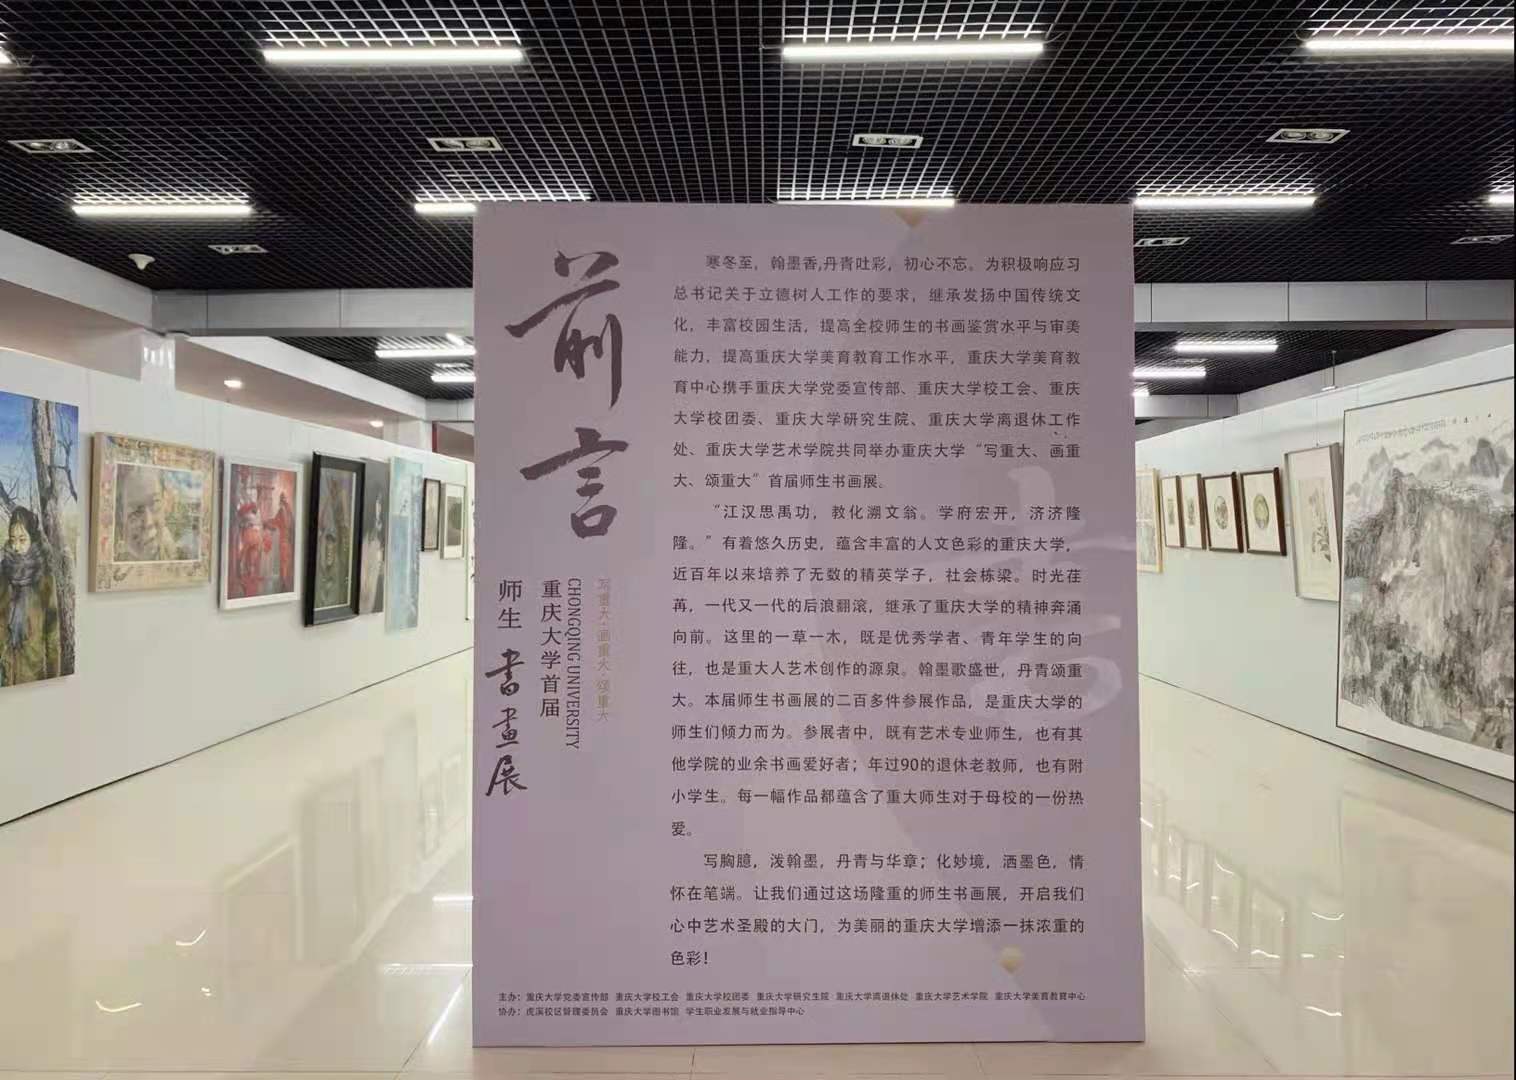 前言
写重大·画重大·颂重大
CHONGQING UNIVERSITY
重庆大学首届
师生書畫展
寒冬至，翰墨香,丹青吐彩，初心不忘。为积极响应习
总书记关于立德树人工作的要求，继承发扬中国传统文
化，丰富校园生活，提高全校师生的书画鉴赏水平与审美
能力，提高重庆大学美育教育工作水平，重庆大学美育教
育中心携手重庆大学党委宣传部、重庆大学校工会、重庆
大学校团委、重庆大学研究生院、重庆大学离退休工作
处、重庆大学艺术学院共同举办重庆大学“写重大、画重
大、颂重大”首届师生书画展。
“江汉思禹功，教化溯文翁。学府宏开，济济隆
隆。”有着悠久历史，蕴含丰富的人文色彩的重庆大学，
近百年以来培养了无数的精英学子，社会栋梁。时光荏
苒，一代又一代的后浪翻滚，继承了重庆大学的精神奔涌
向前。这里的一草一木，既是优秀学者、青年学生的向
往，也是重大人艺术创作的源泉。翰墨歌盛世，丹青颂重
大。本届师生书画展的二百多件参展作品，是重庆大学的
师生们倾力而为。参展者中，既有艺术专业师生，也有其
他学院的业余书画爱好者；年过90的退休老教师，也有附
小学生。每一幅作品都蕴含了重大师生对于母校的一份热
爱。
写胸臆，泼翰墨，丹青与华章；化妙境，洒墨色，情
怀在笔端。让我们通过这场隆重的师生书画展，开启我们
心中艺术圣殿的大门，为美丽的重庆大学增添一抹浓重的
色彩！
主办：重庆大学党委宣传部 重庆大学校工会 重庆大学校团委 重庆大学研究生院 重庆大学离退休处 重庆大学艺术学院 重庆大学美育教育中心
协办：虎溪校区管理委员会 重庆大学图书馆 学生职业发展与就业指导中心
書